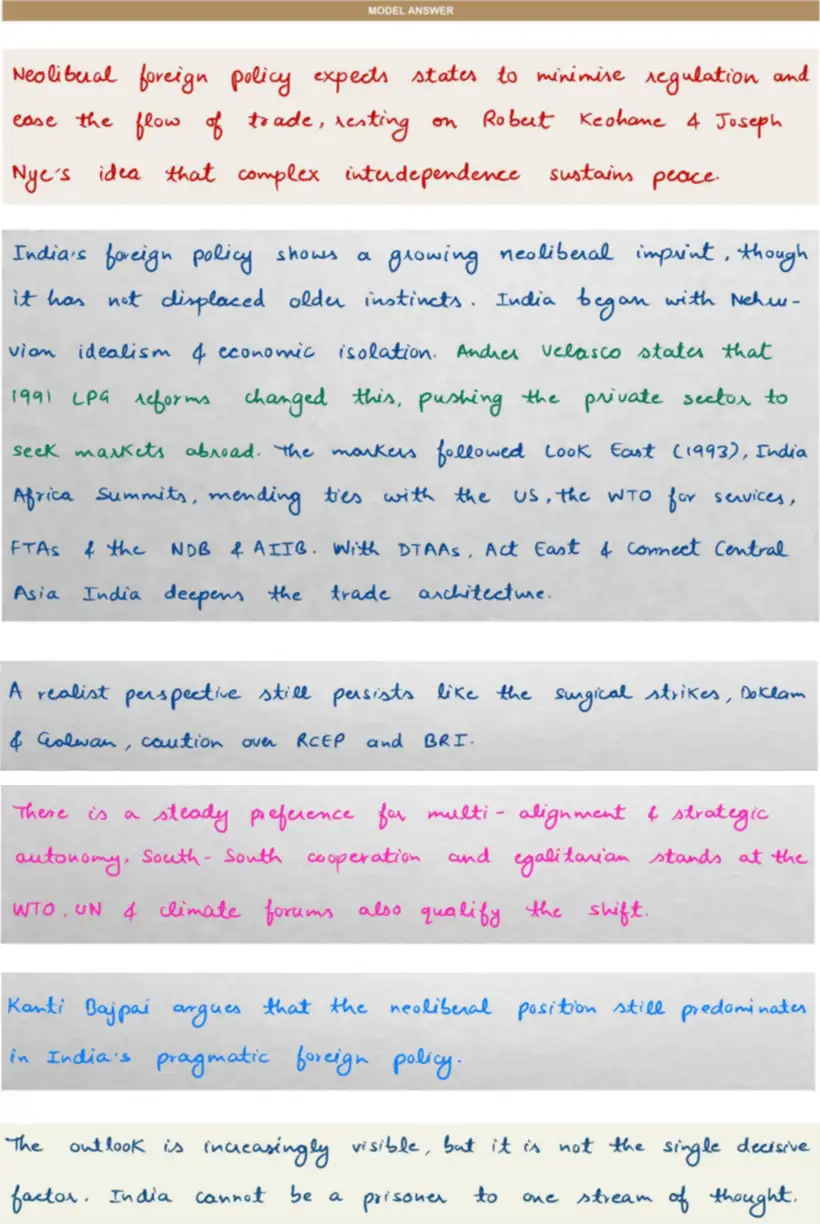 MODEL ANSWER
Neoliberal foreign policy expects states to minimise regulation and
ease the flow of trade, resting on Robert Keohane & Joseph
Nye's idea that complex interdependence sustains peace.
India's foreign policy shows a growing neoliberal imprint, though
it has not displaced older instincts. India began with Nehru-
vian idealism & economic isolation. Andres Velasco states that
1991 LPG reforms changed this, pushing the private sector to
seek markets abroad. The markers followed Look East (1993), India
Africa Summits, mending ties with the US, the WTO for services,
FTAs & the NDB & AIIB. With DTAAs, Act East & Connect Central
Asia India deepens the trade architecture.
A realist perspective still persists like the surgical strikes, Doklam
& Galwan, caution over RCEP and BRI.
There is a steady preference for multi-alignment & strategic
autonomy. South-South cooperation and egalitarian stands at the
WTO, UN & climate forums also qualify the shift.
Kanti Bajpai argues that the neoliberal position still predominates
in India's pragmatic foreign policy.
The outlook is increasingly visible, but it is not the single decisive
factor. India cannot be a prisoner to one stream of thought.